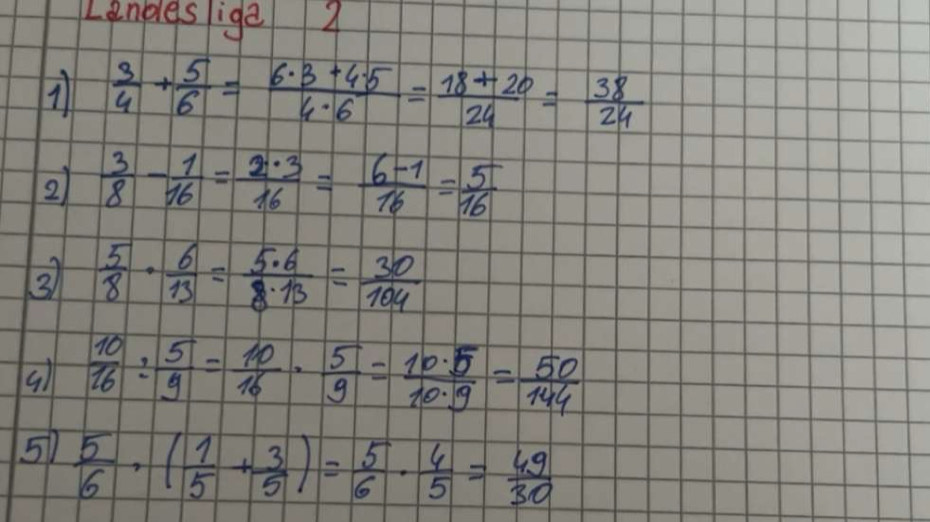 Landesliga 2
1) 3/4 + 5/6 = (6·3+4·5)/(4·6) = (18+20)/24 = 38/24
2) 3/8 - 1/16 = (2·3)/16 = (6-1)/16 = 5/16
3) 5/8 · 6/13 = (5·6)/(8·13) = 30/104
4) 10/16 : 5/9 = 10/16 · 5/9 = (10·5)/(10·9) = 50/144
5) 5/6 · (1/5 + 3/5) = 5/6 · 4/5 = 49/30